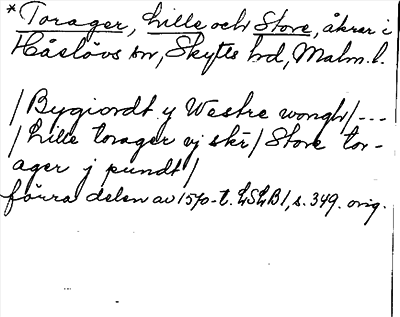 *Torager, Lille och Store, åkrar i
Håslövs sn, Skytts hd, Malm. l.
/Bygiordt y Westre wongh/---
/Lille torager vj skr/ Store tor-
ager j pundt/
förra delen av 1570-t. LSLB1, s. 349. orig.